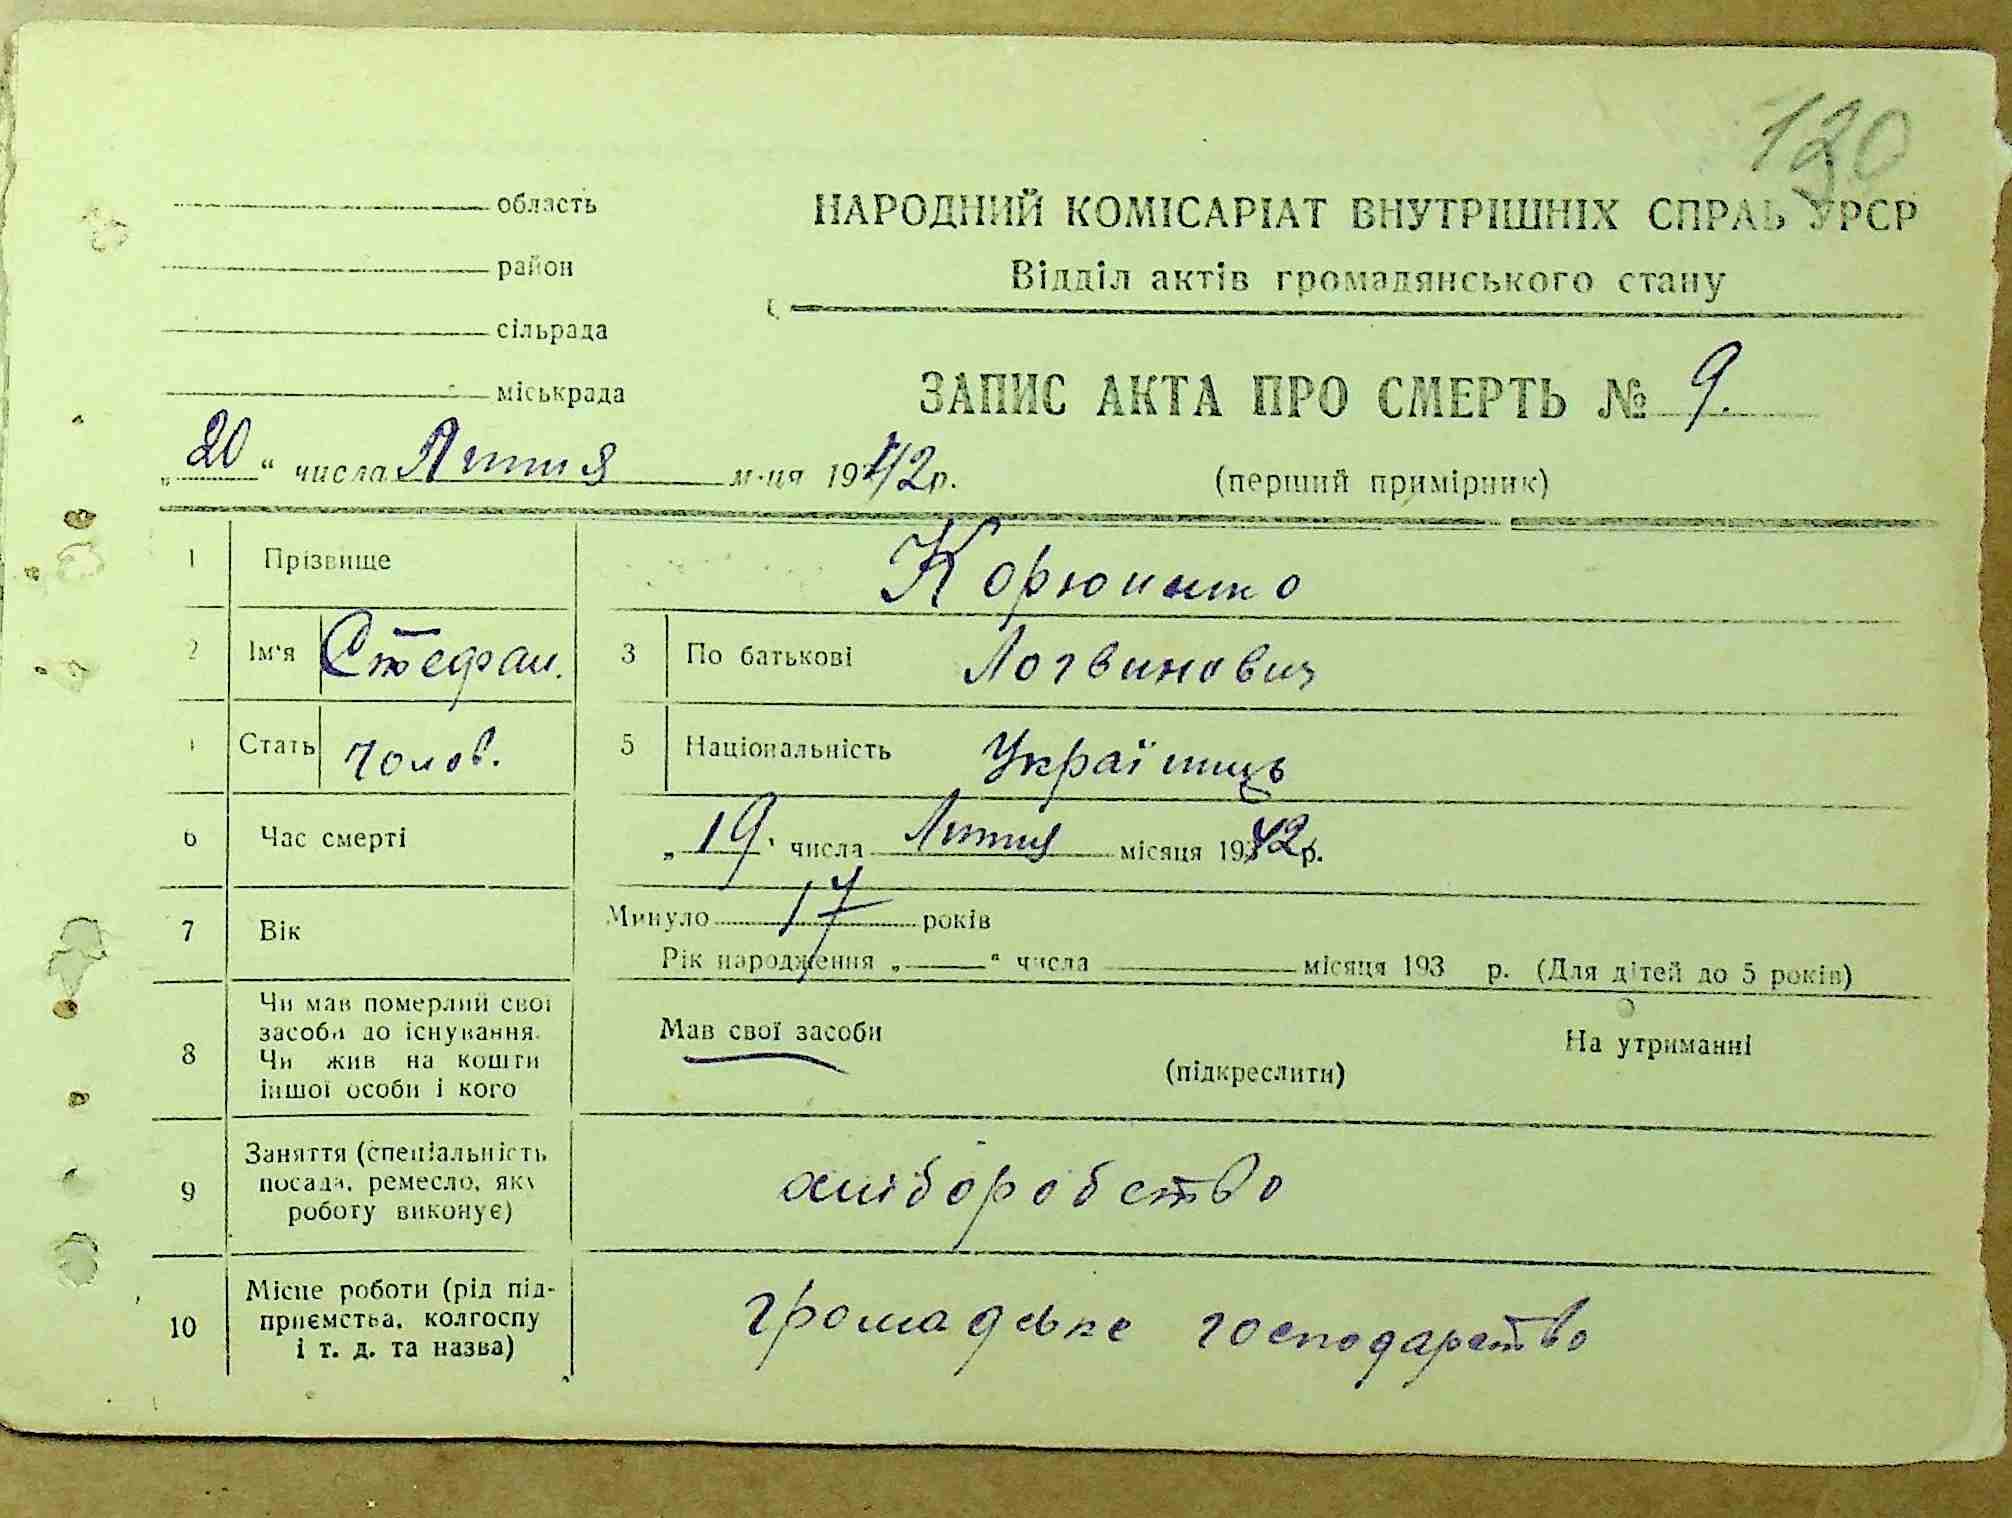 130
область
НАРОДНИЙ КОМІСАРІАТ ВНУТРІШНІХ СПРАВ УРСР
район
Відділ актів громадянського стану
сільрада
міськрада
ЗАПИС АКТА ПРО СМЕРТЬ № 9.
„20“ числа Лютия м-ця 1942р.
(перший примірник)
1 Прізвище
2 Ім'я Стефан. 3 По батькові Логвинович
Стать чолов. 5 Національність Українець
6 Час смерті „19.“ числа Лютия місяця 1942р.
7 Вік Минуло 17 років
Рік народження „ “ числа місяця 193 р. (Для дітей до 5 років)
8 Чи мав померлий свої
засоби до існування.
Чи жив на кошти
іншої особи і кого
Мав свої засоби На утриманні
(підкреслити)
9 Заняття (спеціальність
посада, ремесло, яку
роботу виконує)
хліборобство
10 Місце роботи (рід під-
приємства, колгоспу
і т. д. та назва)
громадське господарство